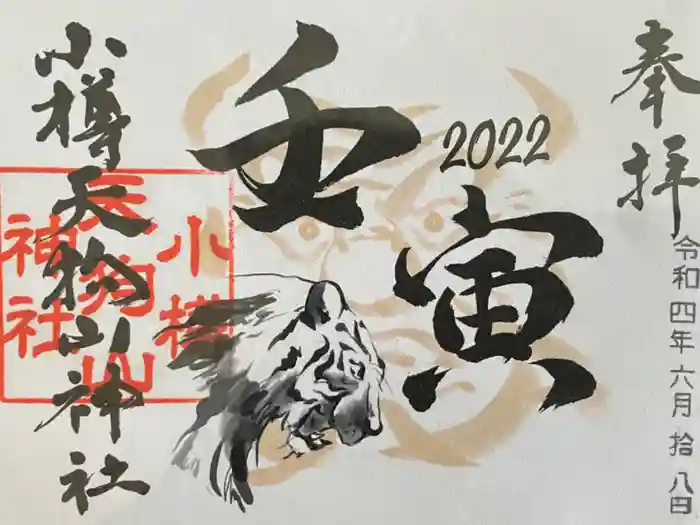 奉拝
令和四年六月拾八日
2022
壬寅
小樽天狗山神社
小樽
天狗山
神社